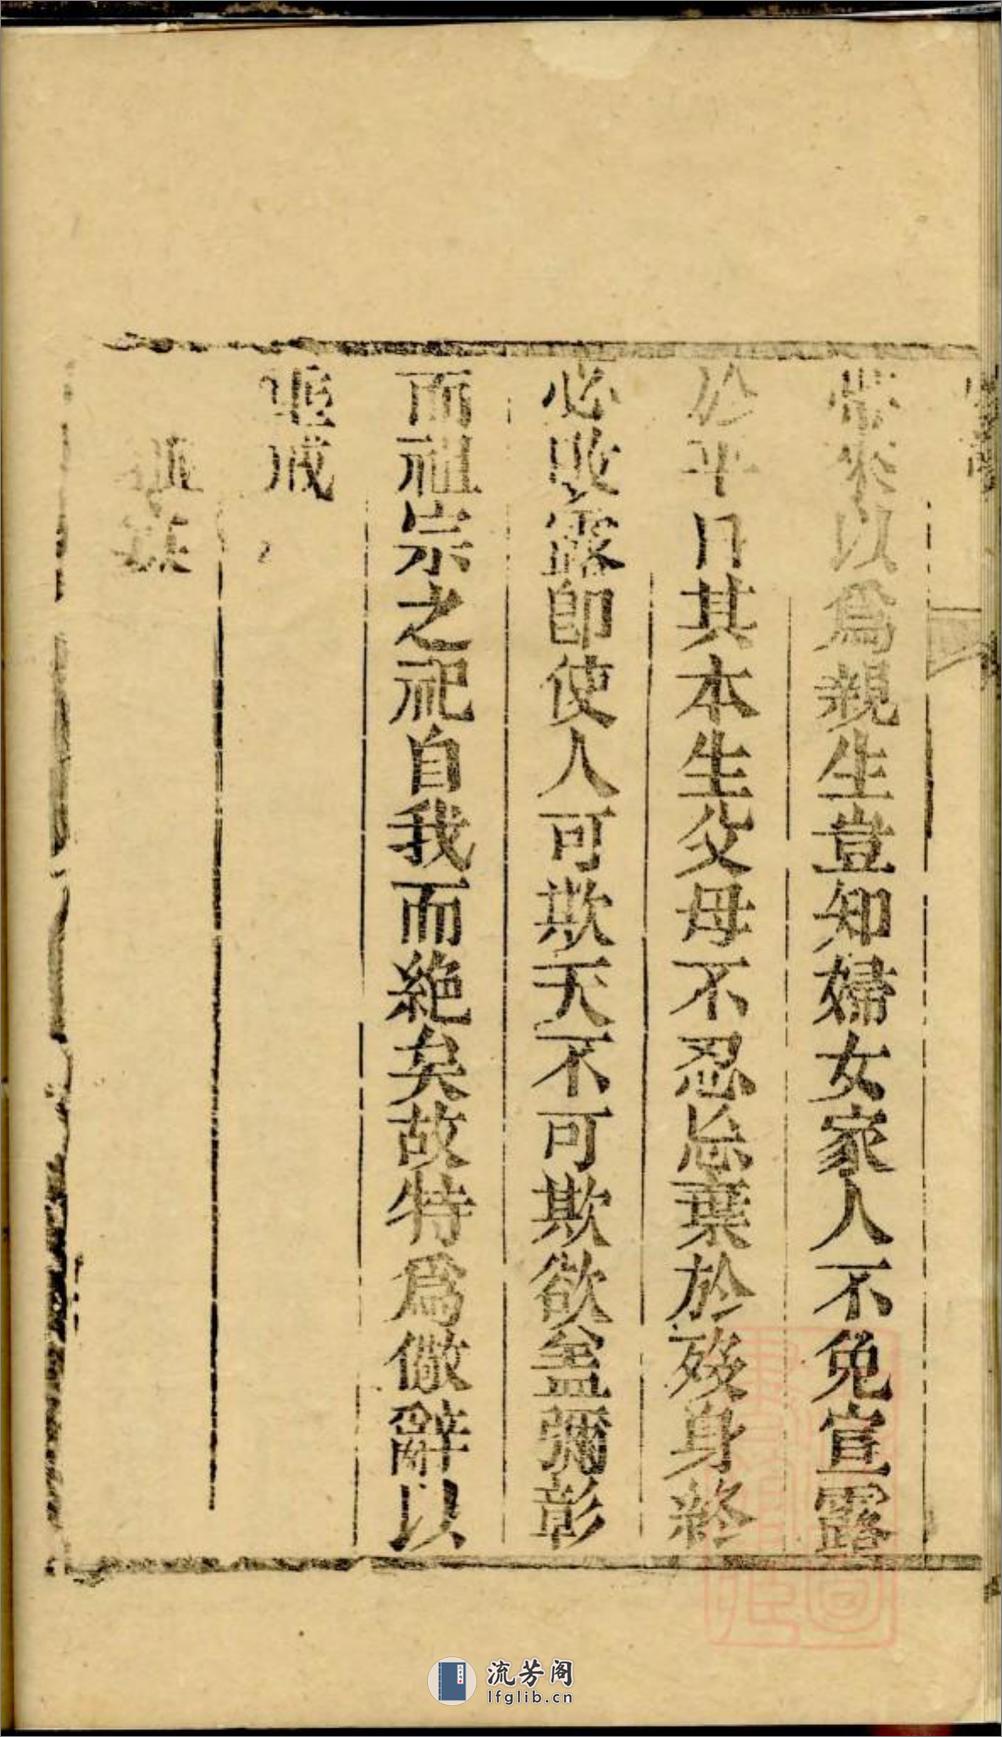 帶來以爲親生豈知婦女家人不免宣露
於平日其本生父母不忍忘棄於歿身終
必敗露卽使人可欺天不可欺欲蓋彌彰
而祖宗之祀自我而絶矣故特爲儆辭以
垂戒
流芳阁
lfglib.cn